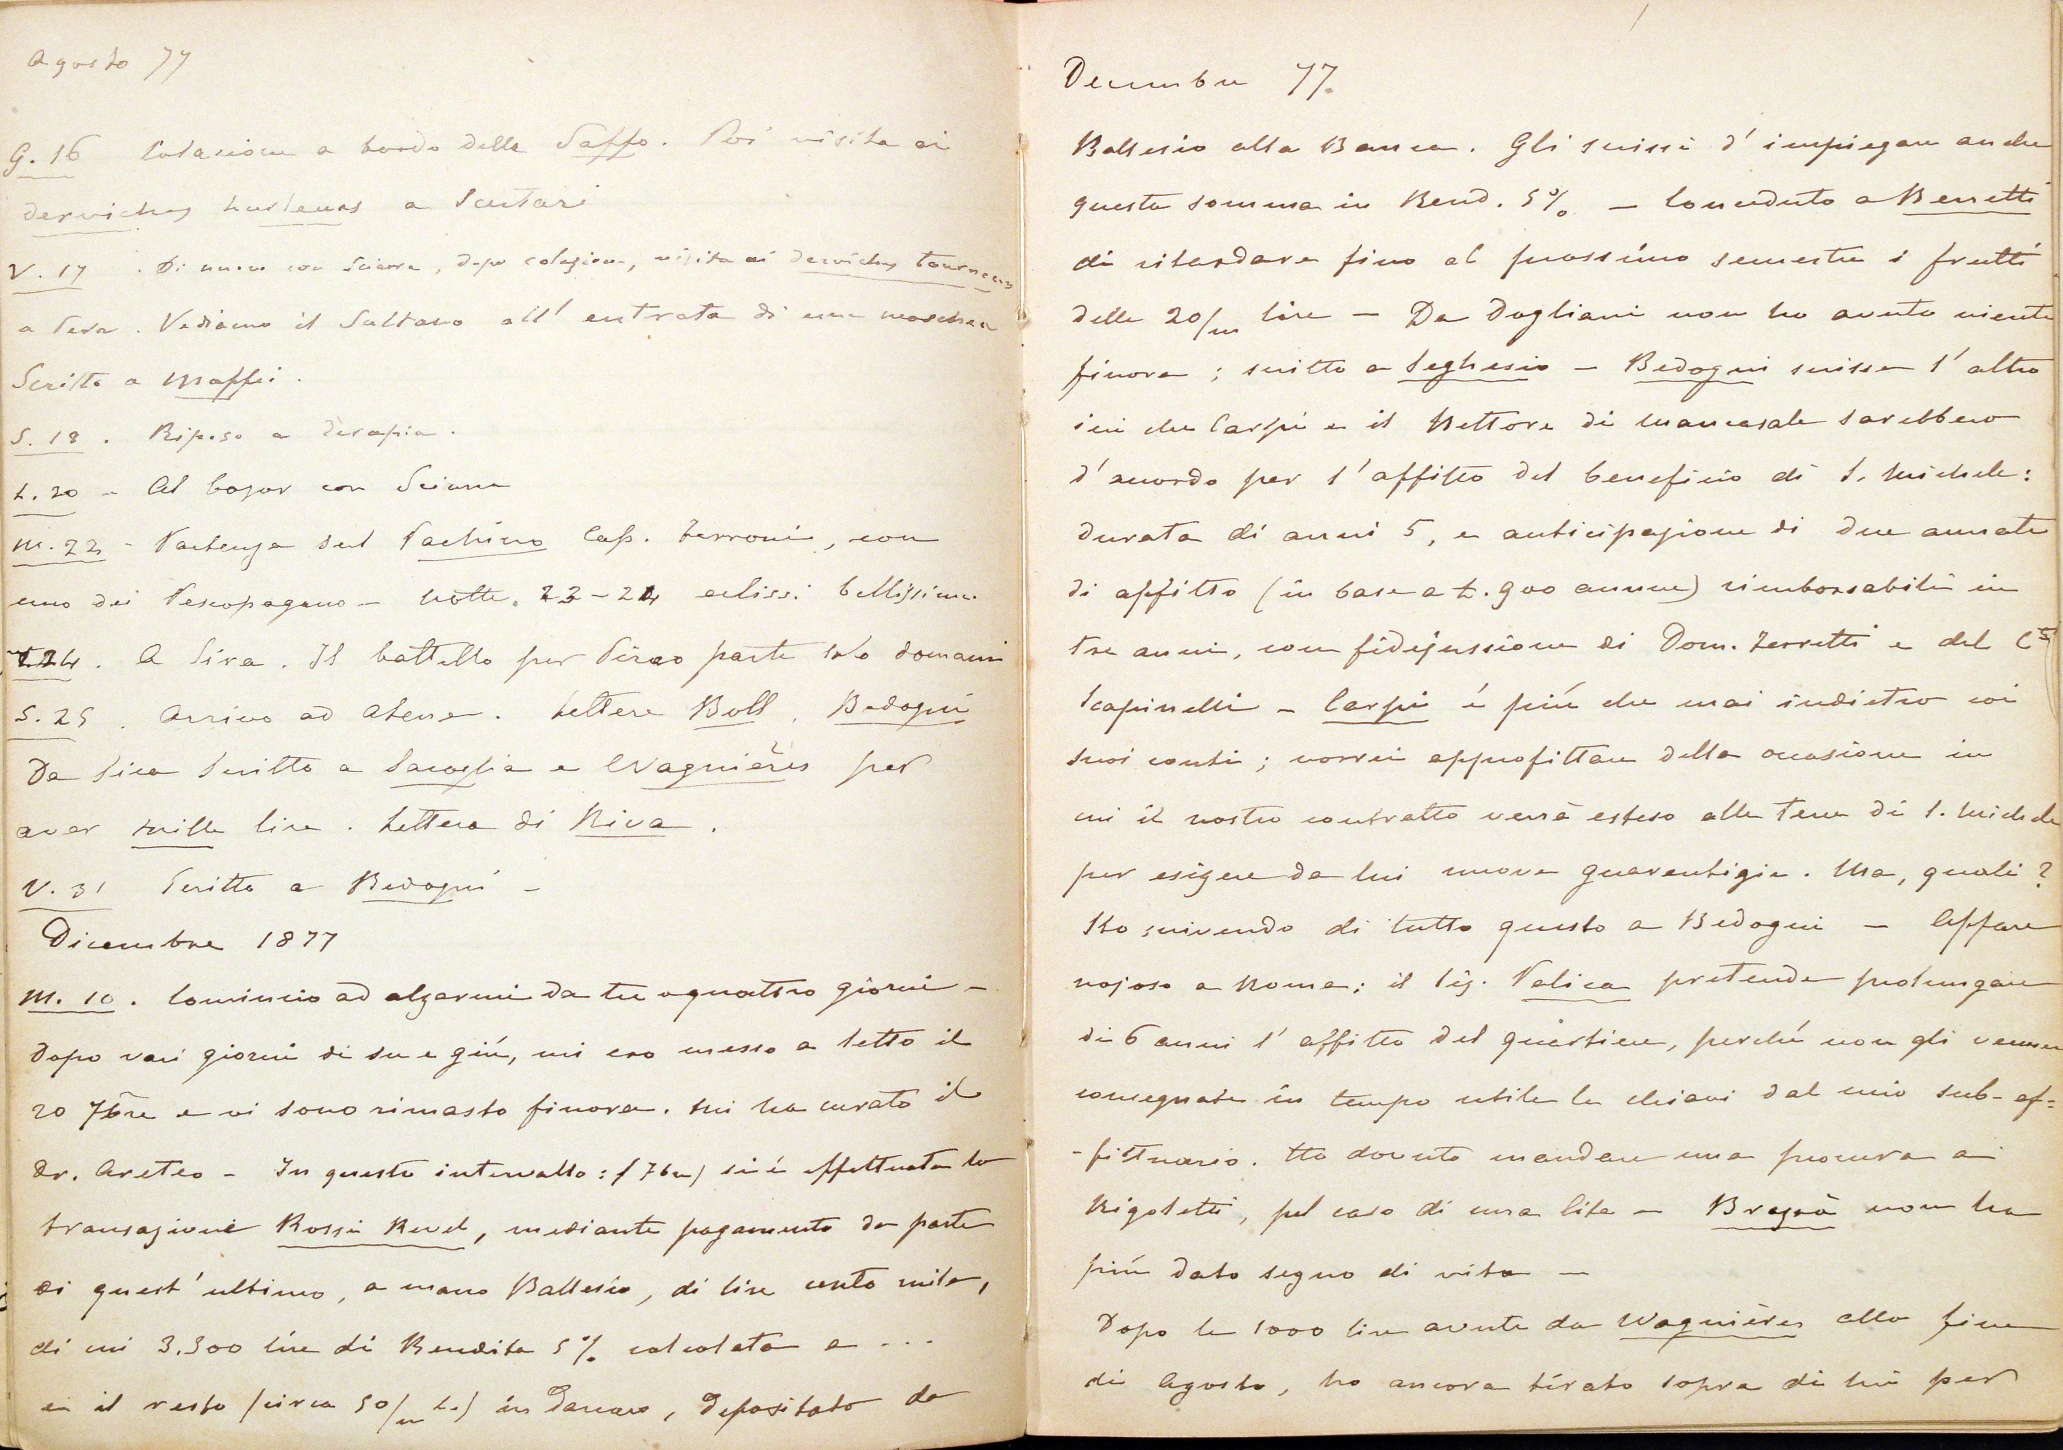 Agosto 77
G. 16 Colazione a bordo della Saffo. Poi visita ai
derviches hurleurs a Scutari
V. 17. Di nuovo con Sciarra, dopo colazione, visita ai derviches tourneurs
a Pera. Vediamo il Sultano all'entrata di una moschea
Scritto a Maffei.
S. 18. Riposo a Terapia.
L. 20 - Al bazar con Sciarra
M. 22 - Partenza sul Pachino Cap. Terroni, con
uno dei Pescopagano - Notte 23-24 eclissi bellissima
24. A Sira. Il battello per Pireo parte solo domani
S. 25. Arrivo ad Atene. Lettere Ball., Bedogni
Da Sira scritto a Sacoglia e Wagnières per
aver mille lire. Lettera di Riva.
V. 31 Scritto a Bedogni -
Dicembre 1877
M. 10. Comincio ad alzarmi da tre o quattro giorni -
dopo vari giorni di su e giù, mi ero messo a letto il
20 7bre e vi sono rimasto finora. Mi ha curato il
Dr. Areteo - In questo intervallo: (7bre) si è effettuata la
transazione Rossi Revel, mediante pagamento da parte
di quest'ultimo, a mano Ballesio, di lire cento mila,
di cui 3.500 lire di Rendita 5% calcolata a ...
e il resto (circa 50/m L.) in danaro, depositato da
Decembre 77.
Ballesio alla Banca. Gli scissi d'impiegare anche
questa somma in Rend. 5% - Conceduto a Berretti
di ritardare fino al prossimo semestre i frutti
delle 20/m lire - Da Dogliani non ho avuto niente
finora; scritto a Seghesio - Bedogni scisse l'altro
ieri che Carpi e il Rettore di Mancasale sarebbero
d'accordo per l'affitto del beneficio di S. Michele:
durata di anni 5, e anticipazione di due annate
di affitto (in base a L. 900 annue) rimborsabili in
tre anni, con fidejussione di Dom. Ferretti e del Cte
Scapinelli - Carpi è più che mai indietro coi
suoi conti; vorrei approfittare della occasione in
cui il nostro contratto verrà esteso alle terre di S. Michele
per esigere da lui nuove guarentigie. Ma, quali?
Sto scrivendo di tutto questo a Bedogni - Affare
nojoso a Roma: il Sig. Pelica pretende prolungare
di 6 anni l'affitto del quartiere, perché non gli vennero
consegnate in tempo utile le chiavi dal mio sub-af=
-fittuario. Ho dovuto mandare una procura a
Rigoletti, pel caso di una lite - Bragoà non ha
più dato segno di vita -
Dopo le 1000 lire avute da Wagnières alla fine
di Agosto, ho ancora tirato sopra di lui per